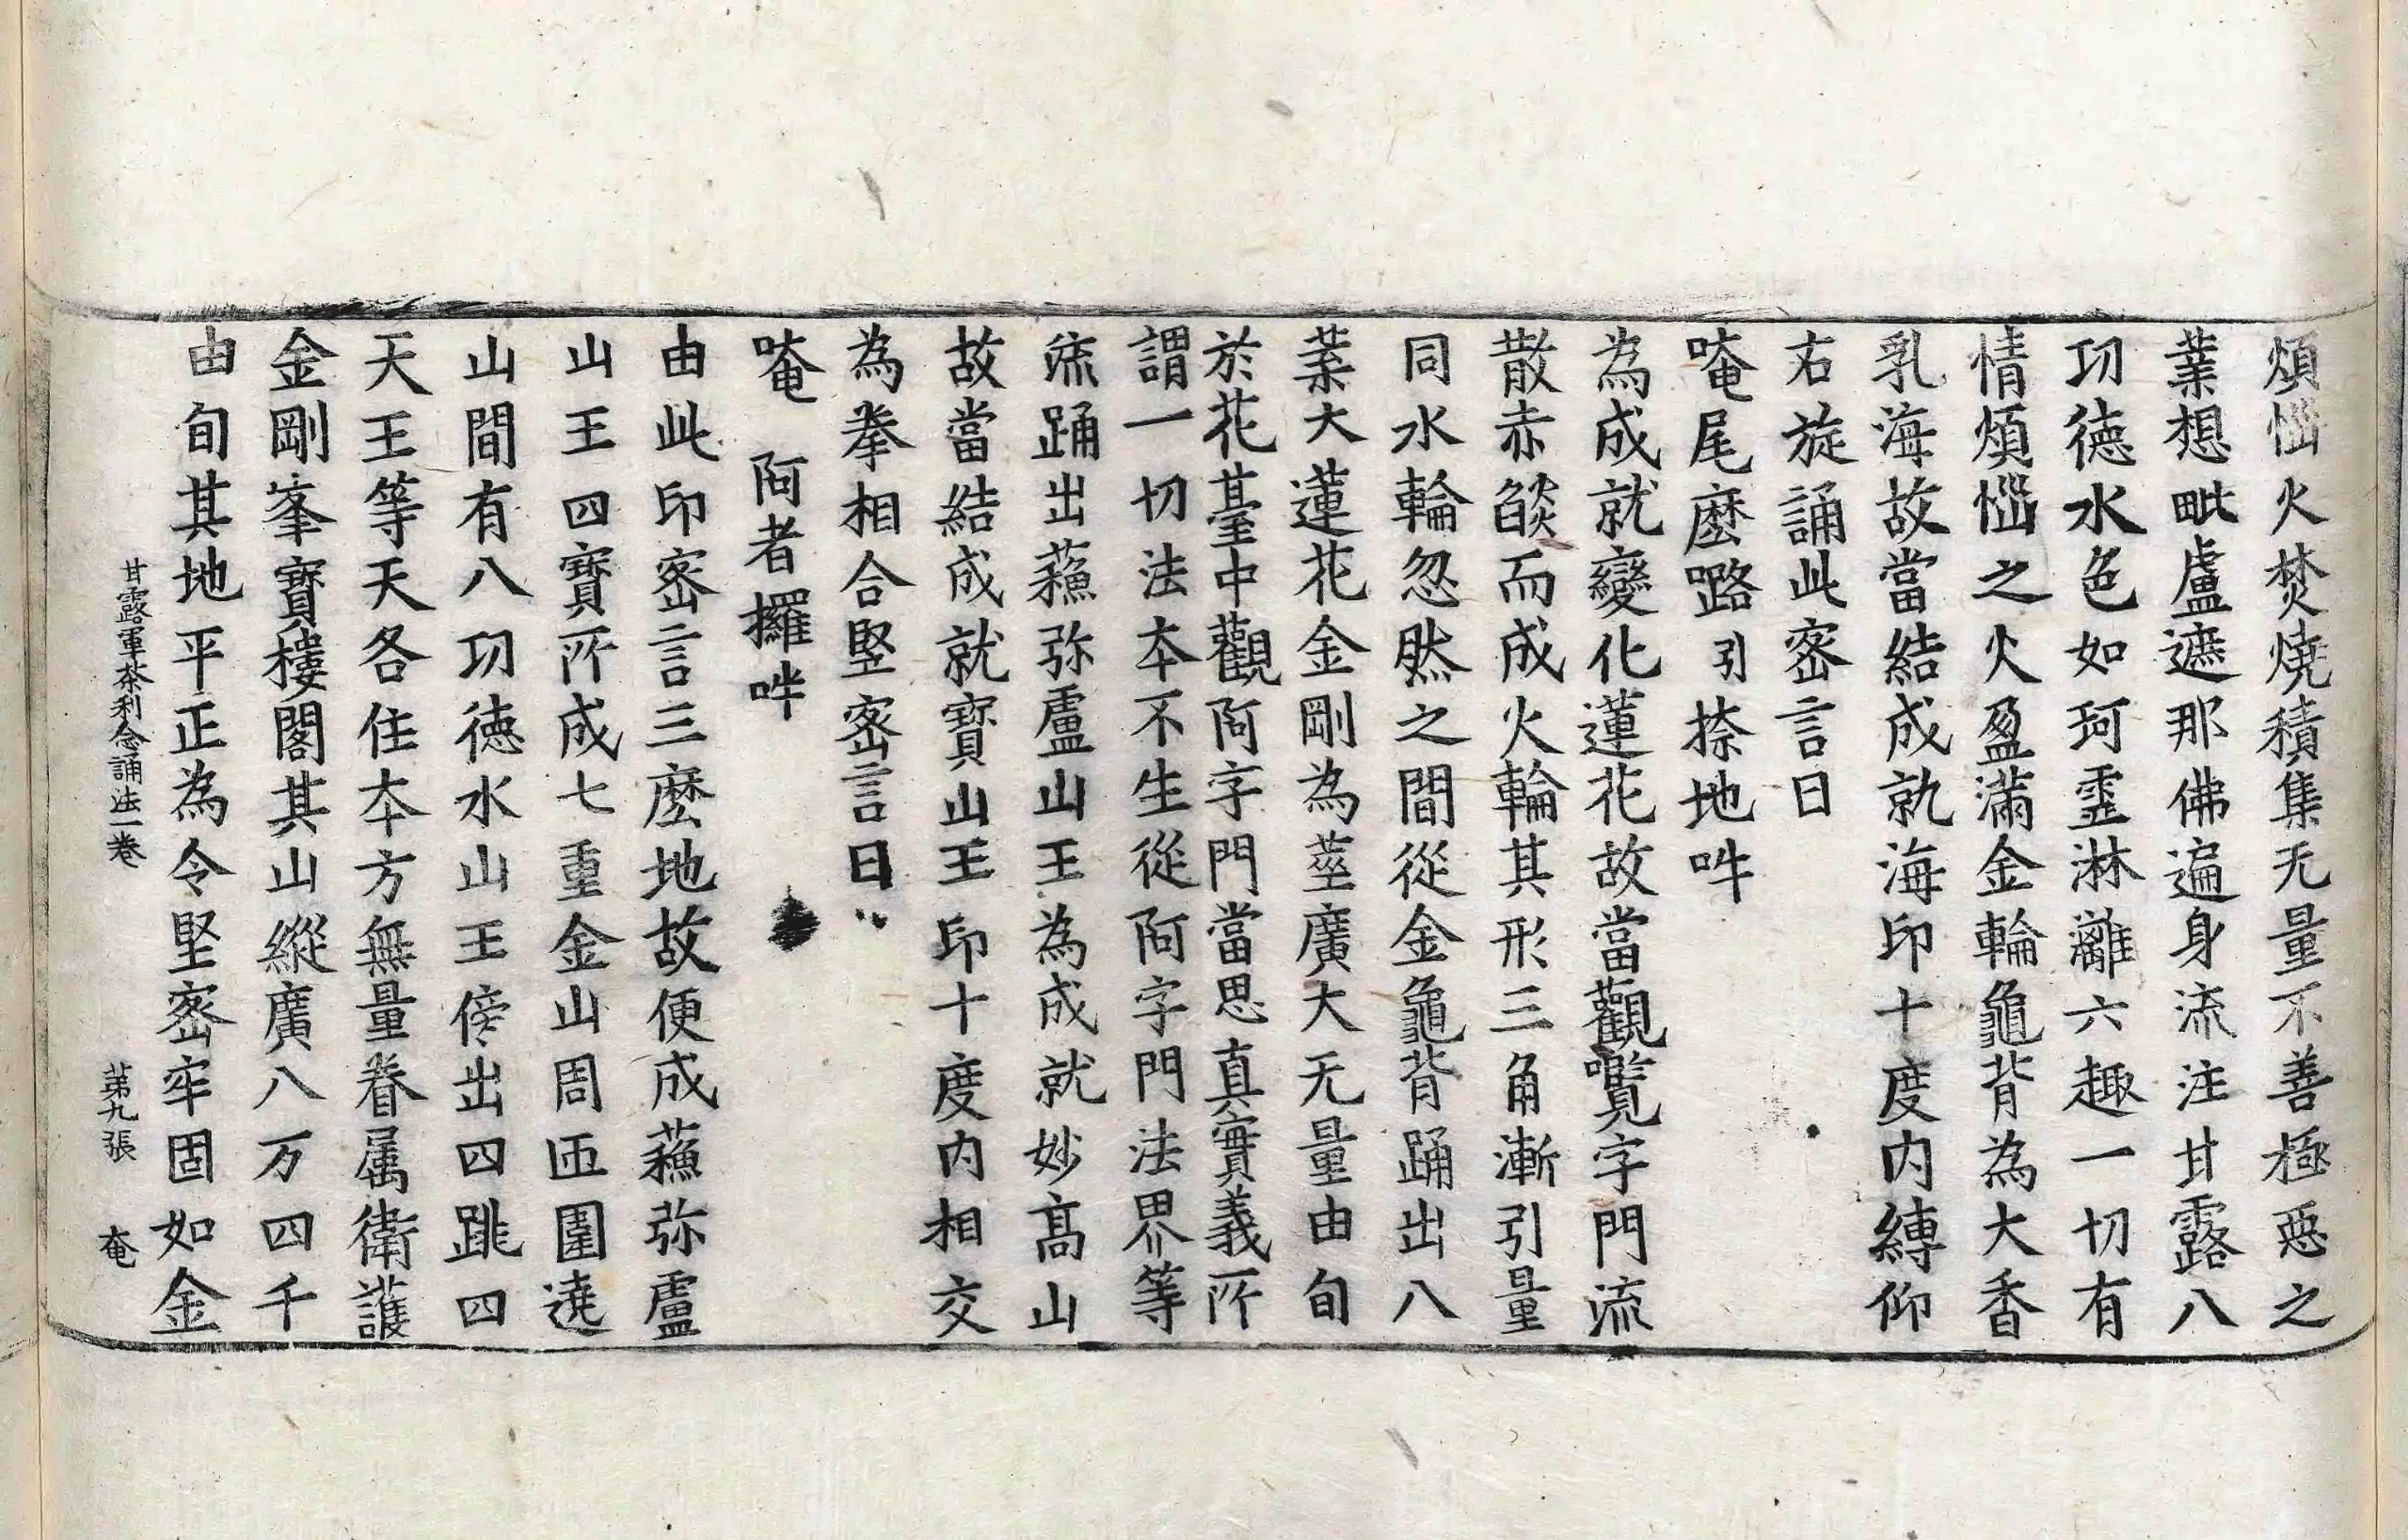 煩惱火焚燒積集无量不善極惡之
業想毗盧遮那佛遍身流注甘露八
功德水色如珂雪淋灕六趣一切有
情煩惱之火盈滿金輪龜背為大香
乳海故當結成就海印十度內縛仰
右旋誦此密言曰
唵尾麼路引捺地吽
為成就變化蓮花故當觀囕字門流
散赤燄而成火輪其形三角漸引量
同水輪忽然之間從金龜背踊出八
葉大蓮花金剛為莖廣大无量由旬
於花臺中觀阿字門當思真實義所
謂一切法本不生從阿字門法界等
流踊出蘓弥盧山王為成就妙高山
故當結成就寶山王印十度內相交
為拳相合豎密言曰
唵 阿者攞吽
由此印密言三麼地故便成蘓弥盧
山王四寶所成七重金山周匝圍遶
山間有八功德水山王傍出四跳四
天王等天各住本方無量眷屬衛護
金剛峯寶樓閣其山縱廣八万四千
由旬其地平正為令堅密牢固如金
甘露軍茶利念誦法一卷 第九張 奄